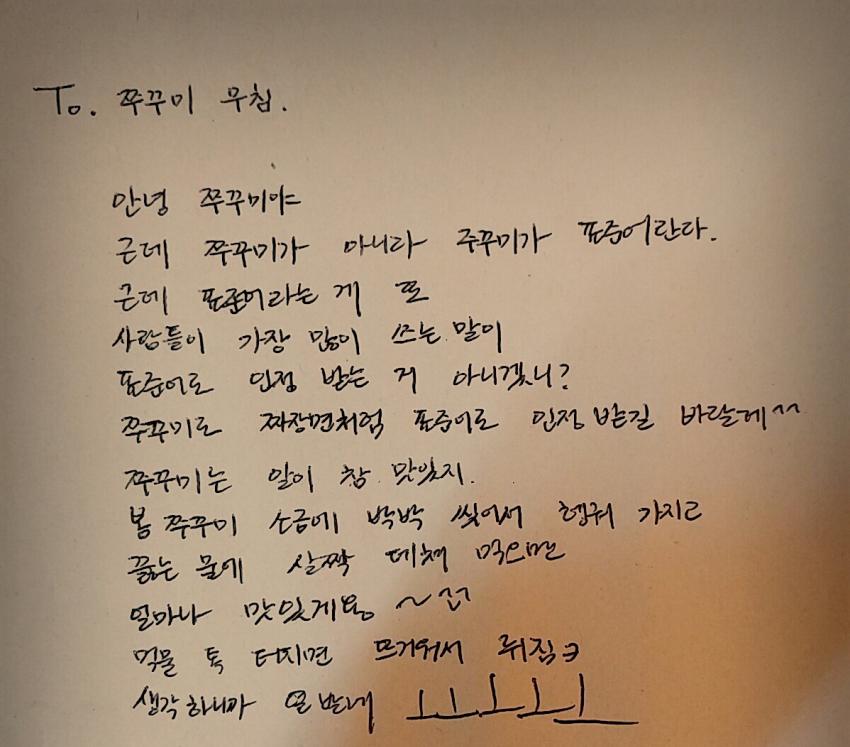 To. 쭈꾸미 무침.
안녕 쭈꾸미야
근데 쭈꾸미가 아니라 주꾸미가 표준어란다.
근데 표준어라는 게 또
사람들이 가장 많이 쓰는 말이
표준어로 인정 받는 거 아니겠니?
쭈꾸미도 짜장면처럼 표준어로 인정 받길 바랄게^^
쭈꾸미는 알이 참 맛있지.
봄 쭈꾸미 소금에 박박 씻어서 헹궈 가지고
끓는 물에 살짝 데쳐 먹으면
얼마나 맛있게요 ~
먹물 톡 터지면 뜨거워서 뒤짐ㅋ
생각하니까 열받네 ㅗㅗㅗㅗㅗ